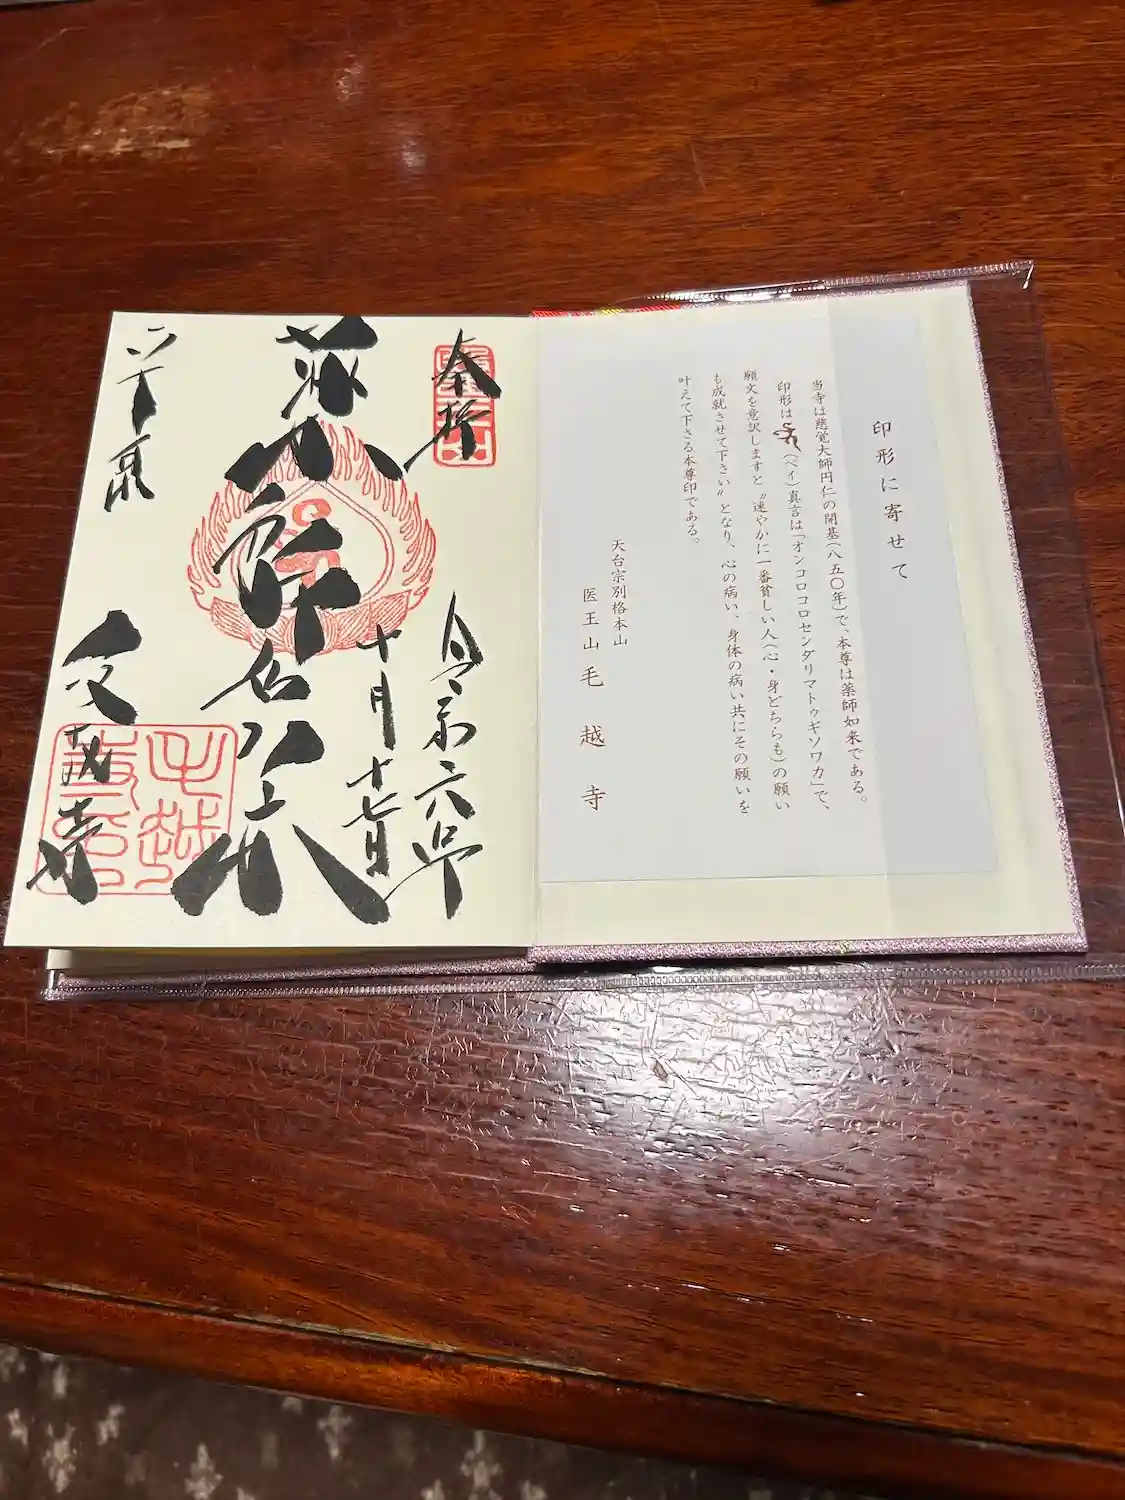 印形に寄せて
当寺は慈覚大師円仁の開基(八五〇年)で、本尊は薬師如来である。
印形は(ベイ)真言は「オンコロコロセンダリマトゥギソワカ」で、
願文を意訳しますと〝速やかに一番貧しい人(心・身どちらも)の願い
も成就させて下さい〟となり、心の病い、身体の病い共にその願いを
叶えて下さる本尊印である。
天台宗別格本山
医王山毛越寺
奉拝
令和六年
十月十七日
薬師如来
平泉
毛越寺